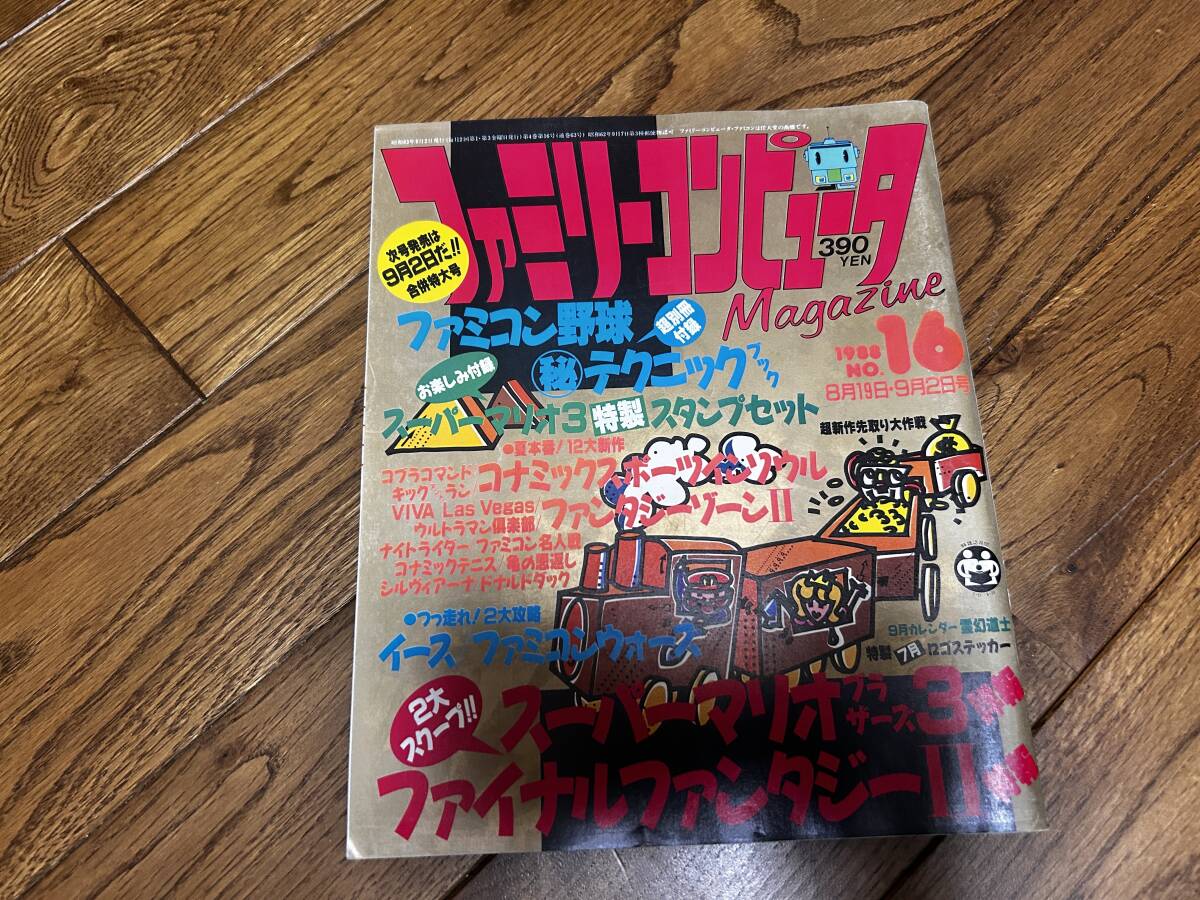 ファミリーコンピュータ
Magazine
390
YEN
次号発売は
9月2日だ!!
合併特大号
1988
NO.16
8月19日・9月2日号
ファミコン野球
超別冊
付録
㊙テクニックブック
お楽しみ付録
スーパーマリオ3特製スタンプセット
超新作先取り大作戦
●夏本番!12大新作
コブラコマンド
キックアンドラン
コナミックスポーツインソウル
VIVA Las Vegas/
ウルトラマン倶楽部/
ファンタジーゾーンII
ナイトライダー ファミコン名人戦
コナミックテニス/亀の恩返し
シルヴィアーナ ドナルドダック
●つっ走れ!2大攻略
イース ファミコンウォーズ
9月カレンダー 霊幻道士
特製 7月 ロゴステッカー
2大
スクープ!!
スーパーマリオブラザーズ3
ファイナルファンタジーII